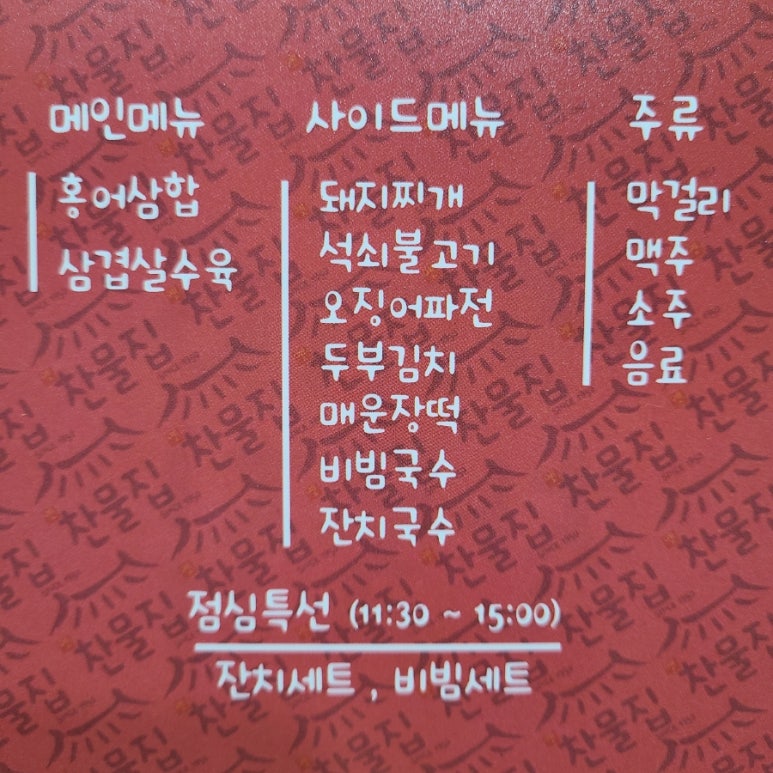 메인메뉴
홍어삼합
삼겹살수육
사이드메뉴
돼지찌개
석쇠불고기
오징어파전
두부김치
매운장떡
비빔국수
잔치국수
주류
막걸리
맥주
소주
음료
점심특선 (11:30 ~ 15:00)
잔치세트, 비빔세트
찬물집